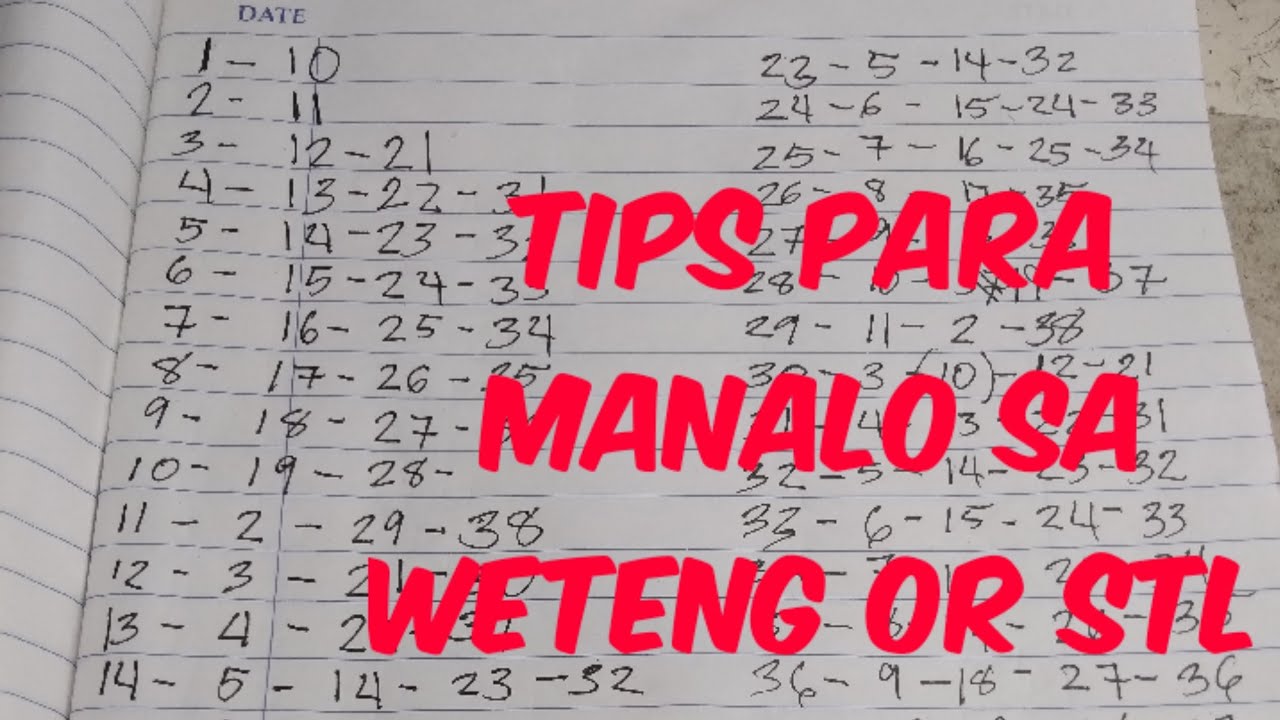 DATE
1 - 10
2 - 11
3 - 12 - 21
4 - 13 - 22 - 31
5 - 14 - 23 -
6 - 15 - 24 - 33
7 - 16 - 25 - 34
8 - 17 - 26 - 35
9 - 18 - 27 -
10 - 19 - 28 -
11 - 2 - 29 - 38
12 - 3 - 21 -
13 - 4 -
14 - 5 - 14 - 23 - 32
23 - 5 - 14 - 32
24 - 6 - 15 - 24 - 33
25 - 7 - 16 - 25 - 34
26 - 8 - 17 - 35
27 - 9 -
28 - 10 - 37
29 - 11 - 2 - 38
30 - 3 - (10) - 12 - 21
31
32 - 5 - 14 - 23 - 32
33 - 6 - 15 - 24 - 33
36 - 9 - 18 - 27 - 36
TIPS PARA
MANALO SA
WETENG OR STL